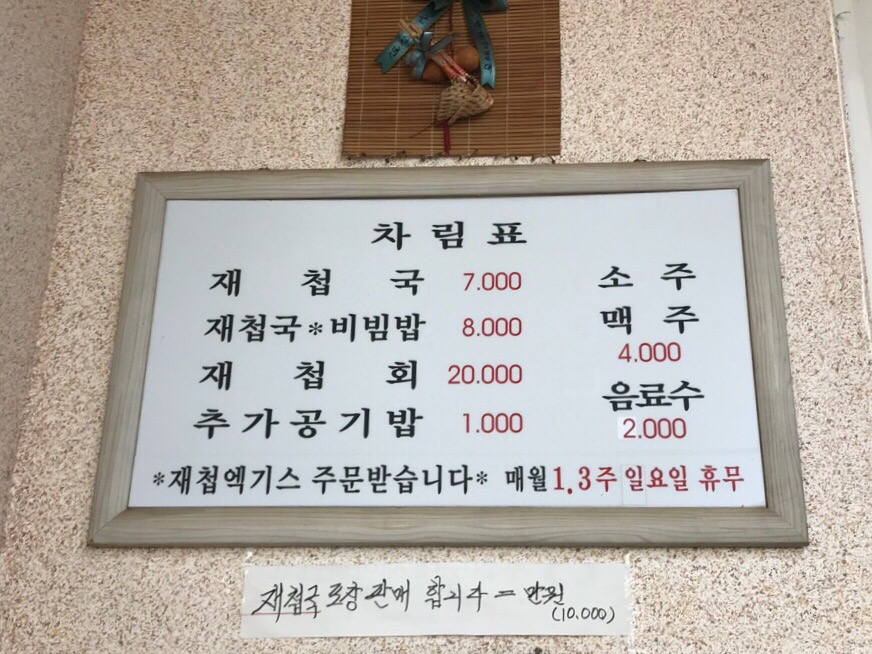 차림표
재첩국 7.000
재첩국*비빔밥 8.000
재첩회 20.000
추가공기밥 1.000
소주
맥주
4.000
음료수
2.000
*재첩엑기스 주문받습니다* 매월 1.3주 일요일 휴무
재첩국 포장 판매 합니다 = 만원
(10.000)